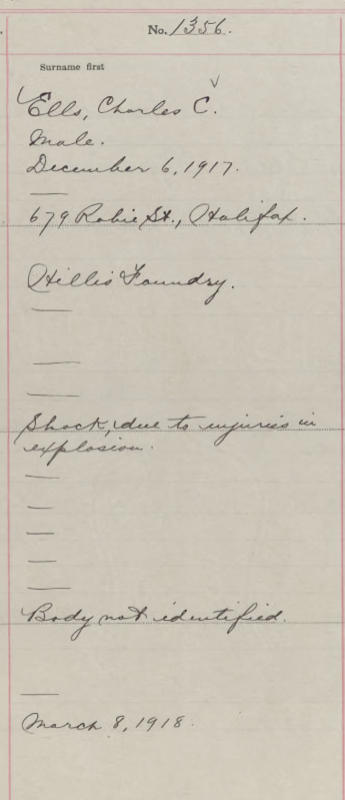 No. 1356.
Surname first
Ells, Charles C.
Male.
December 6, 1917.
679 Robie St., Halifax.
Hillis Foundry.
Shock, due to injuries in
explosion.
Body not identified.
March 8, 1918.